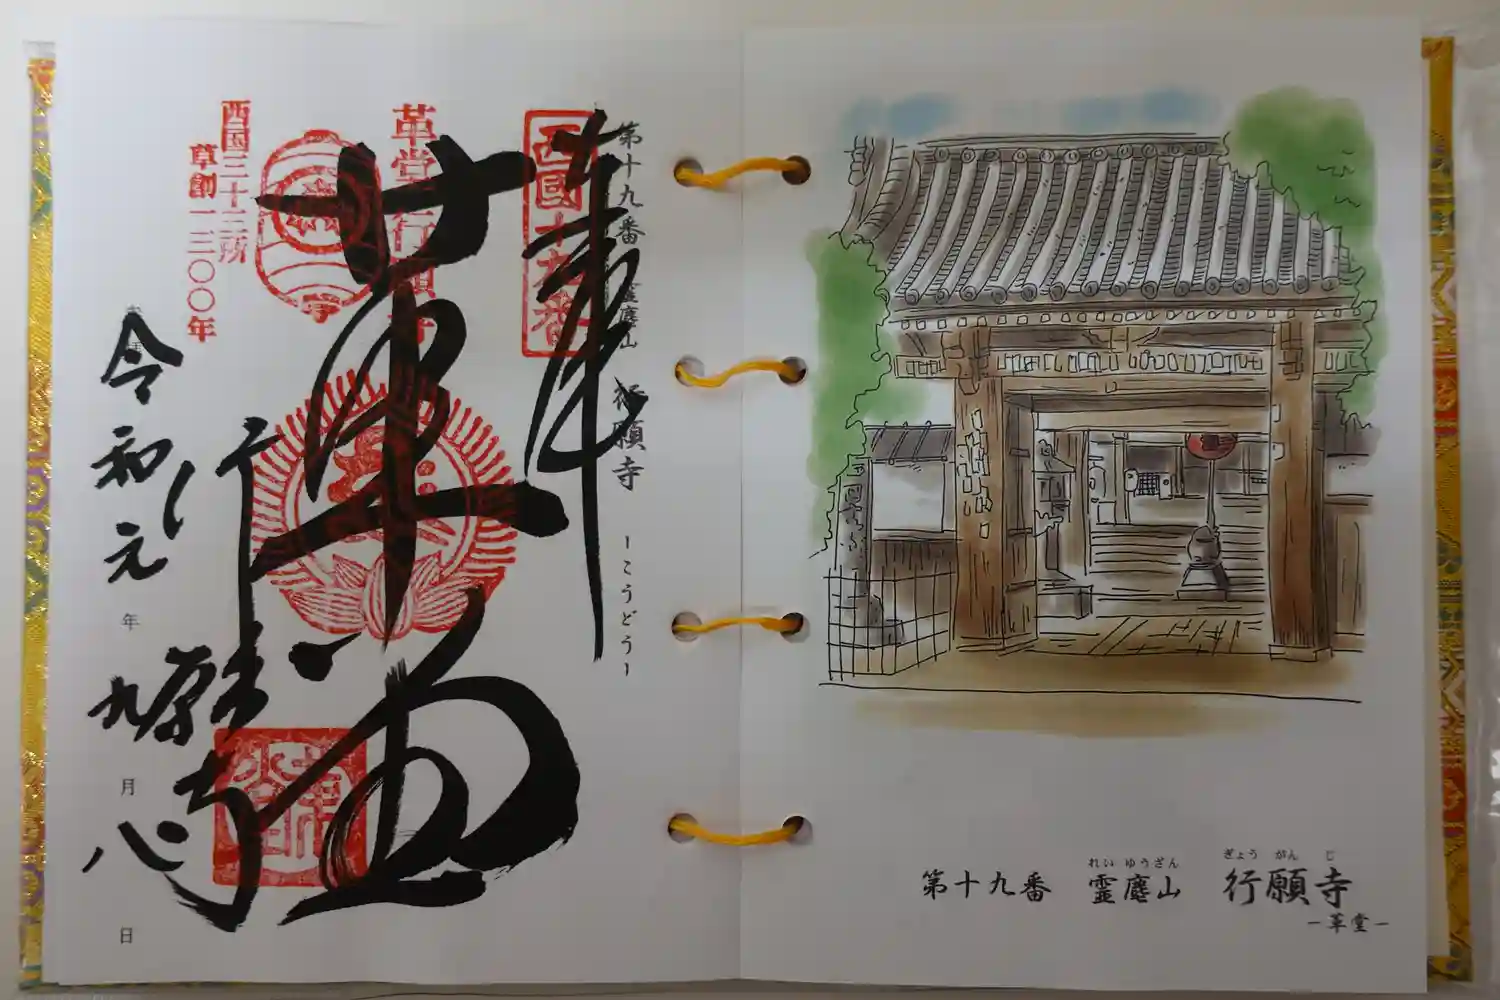 第十九番 霊麀山 行願寺 ーこうどうー
西國十九番
奉拝
革堂行願寺
革堂
西国三十三所
草創一三〇〇年
行願寺
令和元年九月八日
れいゆうざん ぎょうがんじ
第十九番 霊麀山 行願寺
ー革堂ー